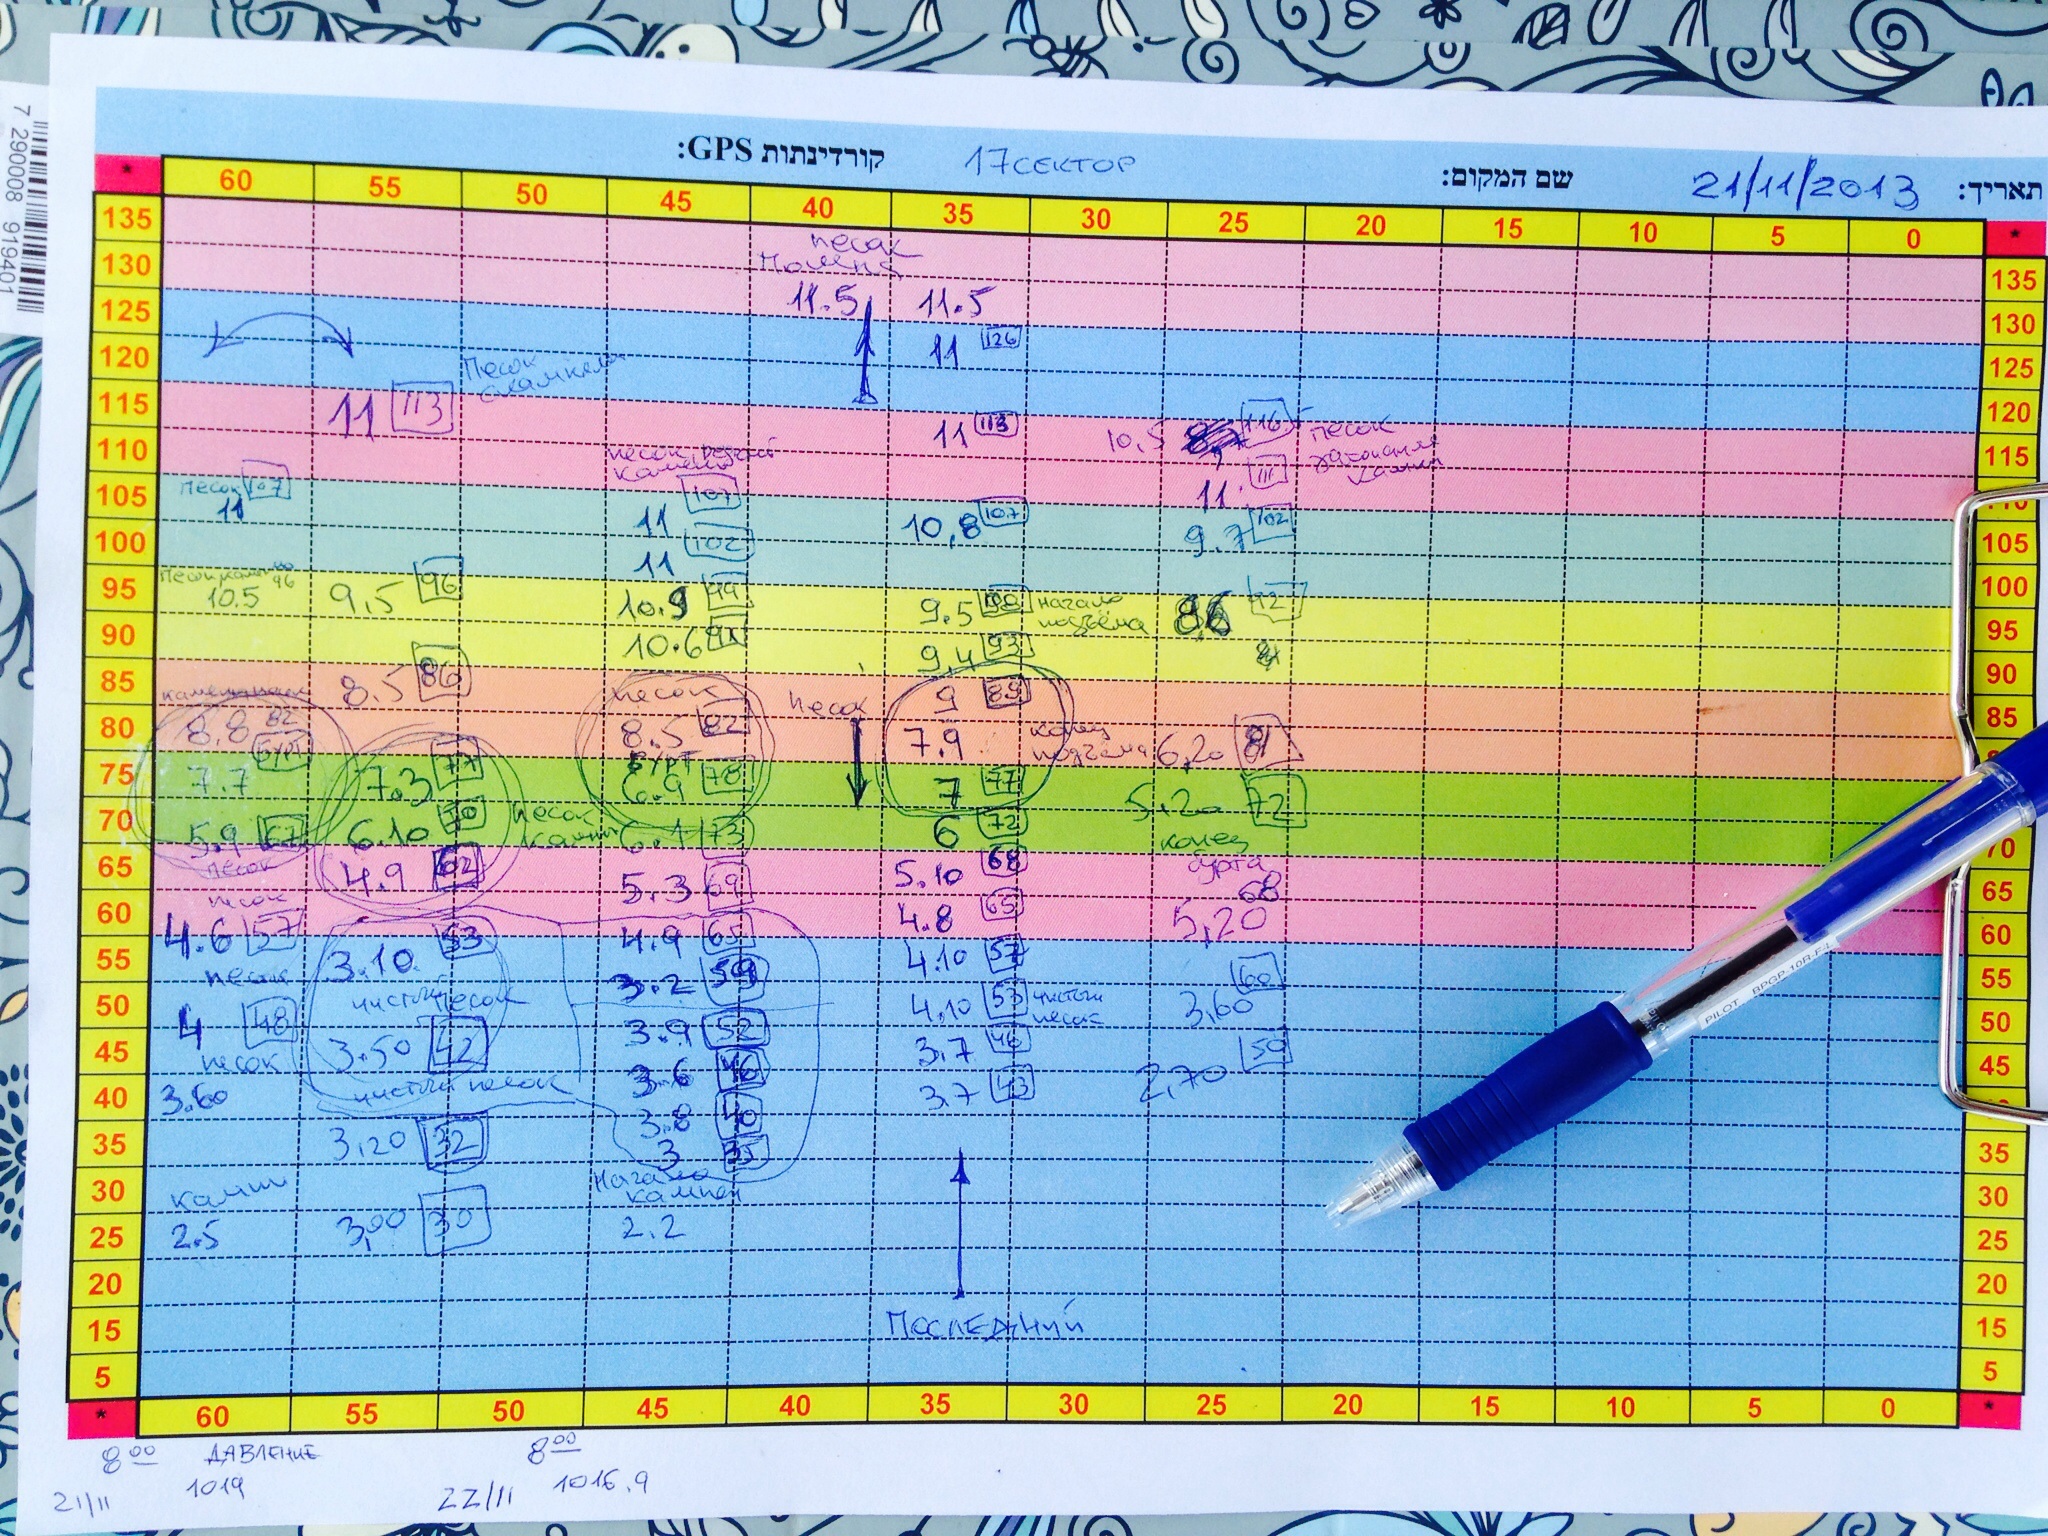 7 290008 919401
קורדינתות GPS: 17 СЕКТОР שם המקום: תאריך: 21/11/2013
* 60 55 50 45 40 35 30 25 20 15 10 5 0 *
135 135
песок
130 130
11.5 11.5
125 125
11 126
120 120
Песок
11 113
115 115
11 113 10,5 116 песок
110 песок
11 111
песок 107 107
105 11 11 10,8 107 9.7 102 105
102
100 11 100
96
10.5 9,5 96 10.9 99 9.5 98 начало подъёма 8,6 92
95 95
10.6 9.4 93
90 90
8.5 86 песок 9 89
85 песок 85
8.8 82 8.5 82 7.9 конец подъёма 6,20 81
80 бурт бурт
7.7 7.3 77 6.9 78 7 77 5.20 72
75
песок
5.9 67 6.10 70 камни 6.1 73 6 72 конец
70 бурта 70
песок 4.9 62 5.3 69 5.10 68 68
65 песок 65
4.6 57 4.9 65 4.8 65 5,20
60 3.10 53 60
песок 3.2 59 4.10 57 60
55 чистый песок 55
4 48 3.9 52 4.10 53 чистый песок 3,60
50 50
песок 3.50 42 3.6 46 3.7 46 50
45 чистый песок 45
3.60 3.8 40 3.7 43 2,70
40
3,20 32 3 35
35 35
камни Начало камней
30 30
2.5 3,00 30 2.2
25 25
20 20
ПОСЛЕДНИЙ
15 15
5 5
* 60 55 50 45 40 35 30 25 20 15 10 5 0 *
8 00 ДАВЛЕНИЕ 8 00
21/11 1019 22/11 1016.9
PILOT BPGP-10R-F-L